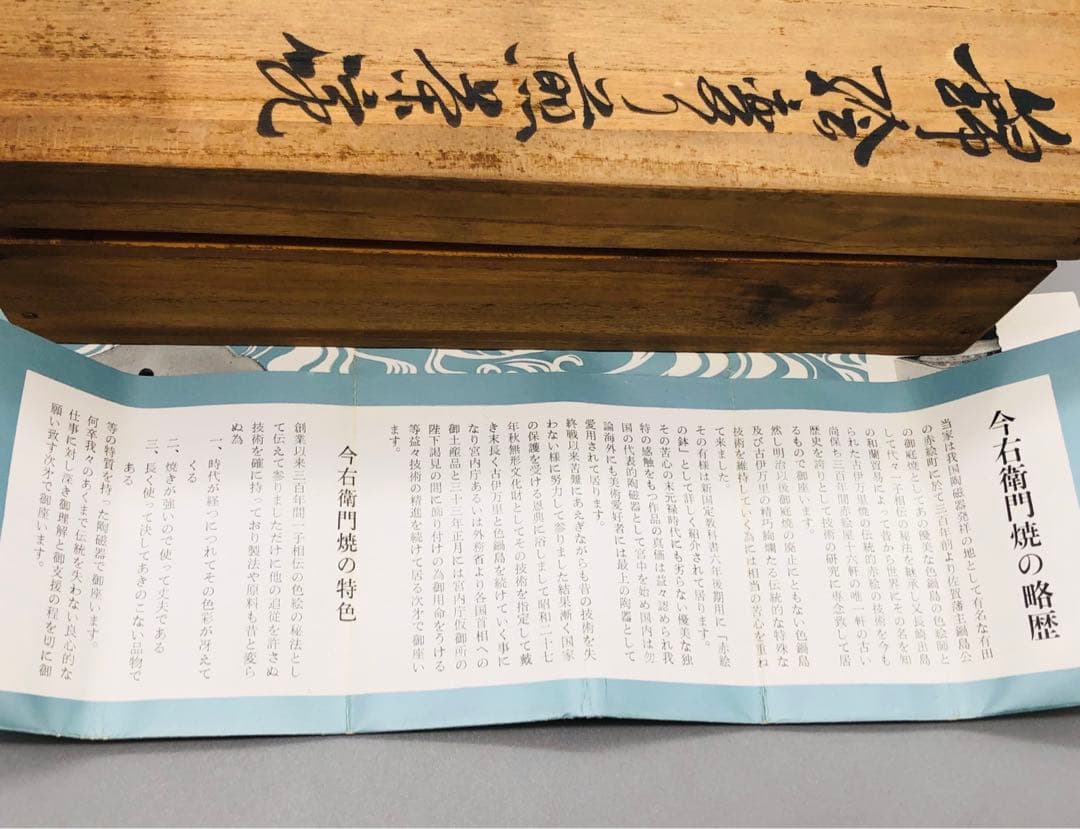 今右衛門焼の略歴
当家は我国陶磁器発祥の地として有名な有田
の赤絵町に於て三百年前より佐賀藩主鍋島公
の御庭焼としてあの優美な色鍋島の色絵師と
して代々一子相伝の秘法を継承し又長崎出島
の和蘭貿易によって昔から世界にその名を知
られた古伊万里焼の伝統的赤絵の技術を今も
尚保ち三百年間赤絵屋十六軒の唯一軒の古い
歴史を誇りとして技術の研究に専念致して居
るもので御座います。
然し明治以後御庭焼の廃止にともない色鍋島
及び古伊万里の精巧絢爛たる伝統的な特殊な
技術を維持していく為には相当の苦心を重ね
て来ました。
その有様は新国定教科書六年後期用に「赤絵
の鉢」として詳しく紹介されて居ります。
その苦心の末元禄時代にも劣らない優美な独
特の感触をもつ作品の真価は益々認められ我
国の代表的陶磁器として宮中を始め国内は勿
論海外にも美術愛好者には最上の陶器として
愛用されて居ります。
終戦以来苦難にあえぎながらも昔の技術を失
わない様に努力して参りました結果漸く国家
の保護を受ける恩典に浴しまして昭和二十七
年秋無形文化財としてその技術を指定して戴
き末長く古伊万里と色鍋島を続けていく事に
なり宮内庁あるいは外務省より各国首相への
御土産品と三十三年正月には宮内庁仮御所の
陛下謁見の間に飾り付けの為御用命をうける
等益々技術の精進を続けて居る次才で御座い
ます。
今右衛門焼の特色
創業以来三百年間一子相伝の色絵の秘法とし
て伝えて参りましただけに他の追従を許さぬ
技術を確に持っており製法や原料も昔と変ら
ぬ為
一、時代が経つにつれてその色彩が冴えて
くる
二、焼きが強いので使って丈夫である
三、長く使って決してあきのこない品物で
ある
等の特質を持った陶磁器で御座います。
何卒我々のあくまで伝統を失わない良心的な
仕事に対し深き御理解と御支援の程を切に御
願い致す次才で御座います。